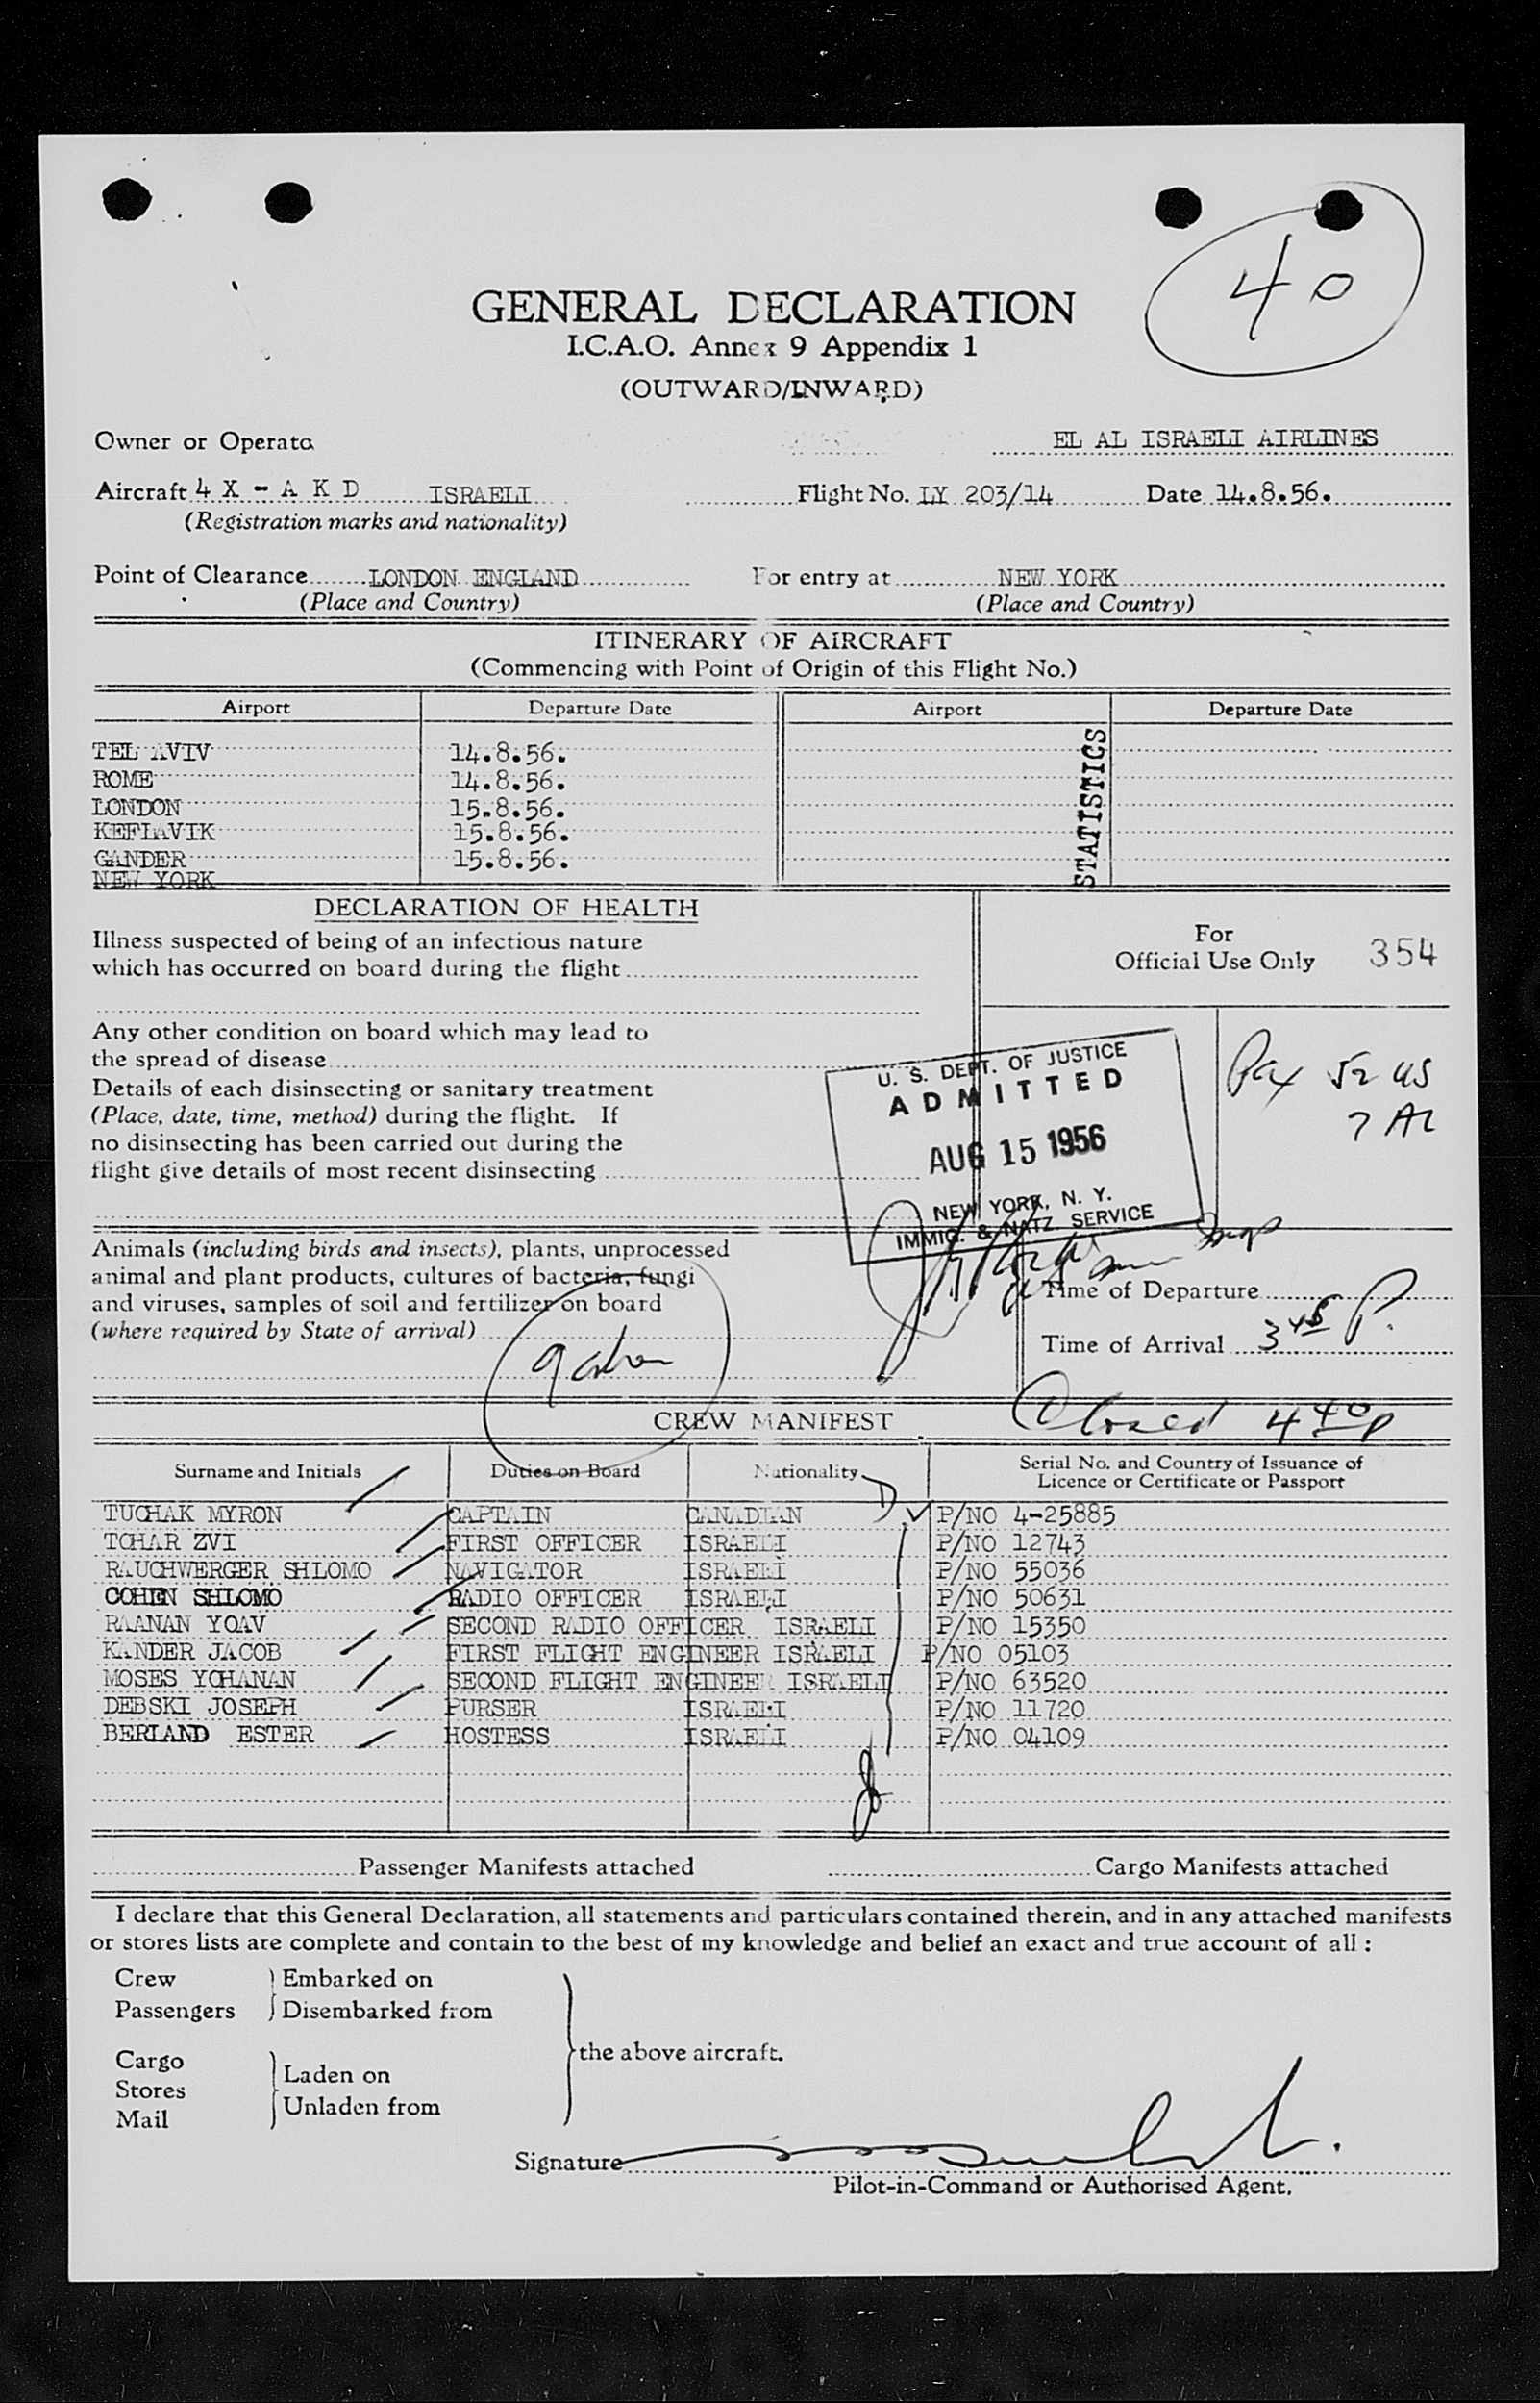 40
GENERAL DECLARATION
I.C.A.O. Annex 9 Appendix 1
(OUTWARD/INWARD)
Owner or Operato EL AL ISRAELI AIRLINES
Aircraft 4 X - A K D ISRAELI Flight No. LY 203/14 Date 14.8.56.
(Registration marks and nationality)
Point of Clearance LONDON ENGLAND For entry at NEW YORK
(Place and Country) (Place and Country)
ITINERARY OF AIRCRAFT
(Commencing with Point of Origin of this Flight No.)
Airport Departure Date Airport Departure Date
TEL AVIV 14.8.56.
ROME 14.8.56.
LONDON 15.8.56.
KEFLAVIK 15.8.56.
GANDER 15.8.56.
NEW YORK
STATISTICS
DECLARATION OF HEALTH
Illness suspected of being of an infectious nature
which has occurred on board during the flight
For
Official Use Only 354
Any other condition on board which may lead to
the spread of disease
Details of each disinsecting or sanitary treatment
(Place, date, time, method) during the flight. If
no disinsecting has been carried out during the
flight give details of most recent disinsecting
U. S. DEPT. OF JUSTICE
ADMITTED
AUG 15 1956
NEW YORK, N. Y.
IMMIG. & NATZ SERVICE
Pax 52 US
7 AL
Animals (including birds and insects), plants, unprocessed
animal and plant products, cultures of bacteria, fungi
and viruses, samples of soil and fertilizer on board
(where required by State of arrival)
Time of Departure
Time of Arrival 3 45 P.
Closed 4 40 P
CREW MANIFEST
Surname and Initials Duties on Board Nationality Serial No. and Country of Issuance of
Licence or Certificate or Passport
TUCHAK MYRON CAPTAIN CANADIAN P/NO 4-25885
TCHAR ZVI FIRST OFFICER ISRAELI P/NO 12743
RAUCHWERGER SHLOMO NAVIGATOR ISRAELI P/NO 55036
COHEN SHLOMO RADIO OFFICER ISRAELI P/NO 50631
RAANAN YOAV SECOND RADIO OFFICER ISRAELI P/NO 15350
KANDER JACOB FIRST FLIGHT ENGINEER ISRAELI P/NO 05103
MOSES YOHANAN SECOND FLIGHT ENGINEER ISRAELI P/NO 63520
DEBSKI JOSEPH PURSER ISRAELI P/NO 11720
BERLAND ESTER HOSTESS ISRAELI P/NO 04109
Passenger Manifests attached Cargo Manifests attached
I declare that this General Declaration, all statements and particulars contained therein, and in any attached manifests
or stores lists are complete and contain to the best of my knowledge and belief an exact and true account of all :
Crew Embarked on
Passengers Disembarked from
the above aircraft.
Cargo
Stores Laden on
Mail Unladen from
Signature
Pilot-in-Command or Authorised Agent.